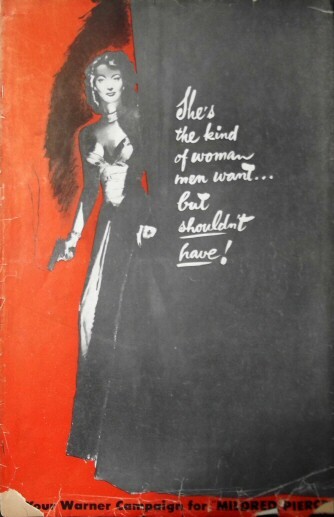 She's
the kind
of woman
men want...
but
shouldn't
have!
Your Warner Campaign for "MILDRED PIERC